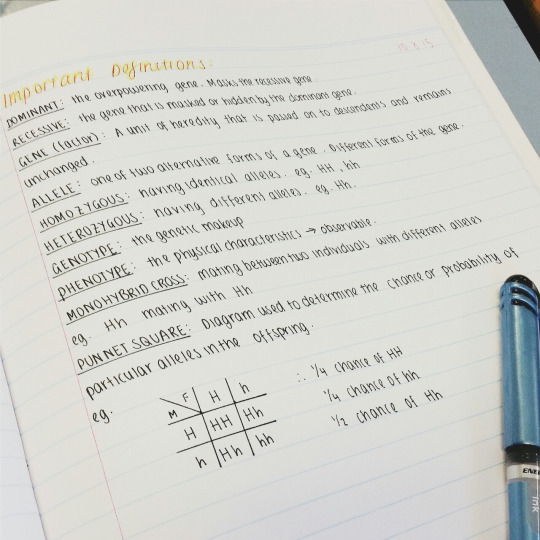 Important Definitions:
DOMINANT: the overpowering gene. Masks the recessive gene.
RECESSIVE: the gene that is masked or hidden by the dominant gene.
GENE (factor): A unit of heredity that is passed on to descendants and remains
unchanged.
ALLELE: one of two alternative forms of a gene. Different forms of the gene.
HOMOZYGOUS: having identical alleles. eg. HH, hh
HETEROZYGOUS: having different alleles. eg. Hh.
GENOTYPE: the genetic makeup
PHENOTYPE: the physical characteristics → observable.
MONOHYBRID CROSS: mating between two individuals with different alleles
eg. Hh mating with Hh
PUNNET SQUARE: Diagram used to determine the chance or probability of
particular alleles in the offspring.
eg.
M F H h
H HH Hh
h Hh hh
∴ 1/4 chance of HH
1/4 chance of hh
1/2 chance of Hh
ENE
ink